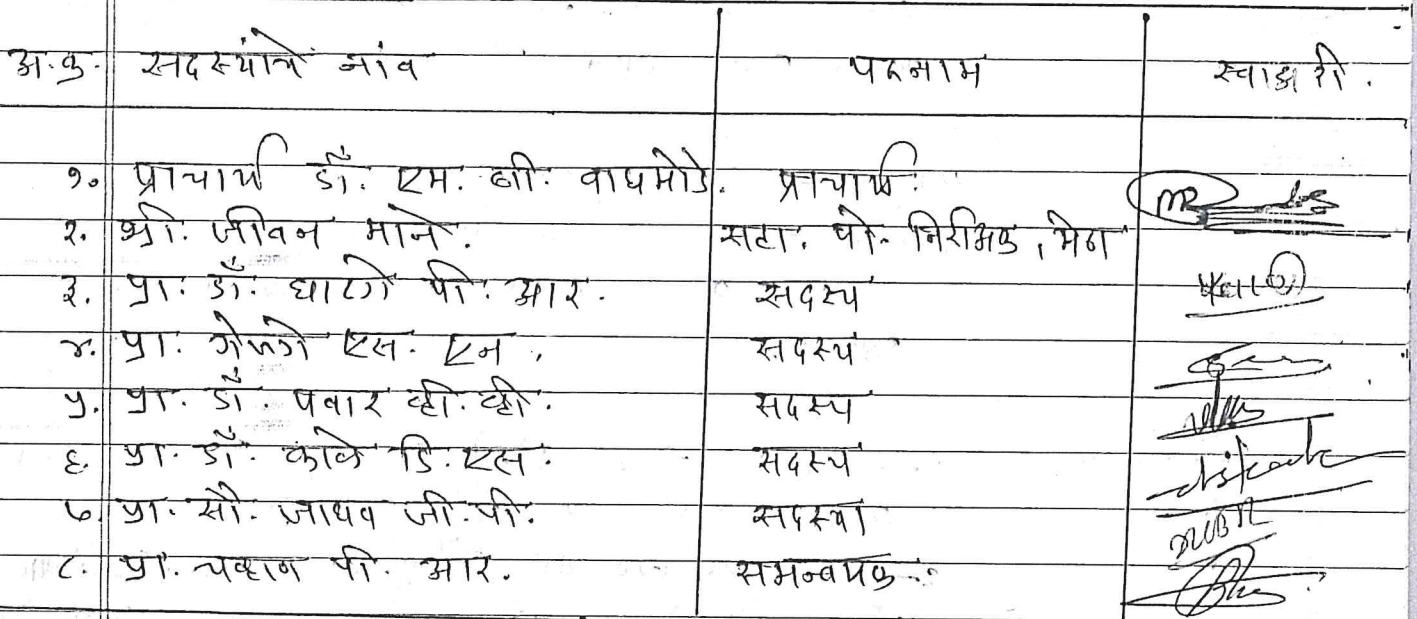 अ.क्रु. सदस्यांचे नांव पदनाम स्वाक्षरी.
१. प्राचार्य डॉ. एम. बी. वाघमोडे. प्राचार्य.
२. श्री. जीवन माने. सहा. पो. निरीक्षक, मेढा
३. प्रा. डॉ. घाटगे पी. आर. सदस्य
४. प्रा. गेजगे एस. एन. सदस्य
५. प्रा. डॉ. पवार व्ही. व्ही. सदस्य
६. प्रा. डॉ. काळे डि. एस. सदस्य
७. प्रा. सौ. जाधव जी. पी. सदस्या
८. प्रा. चव्हाण पी. आर. समन्वयक.